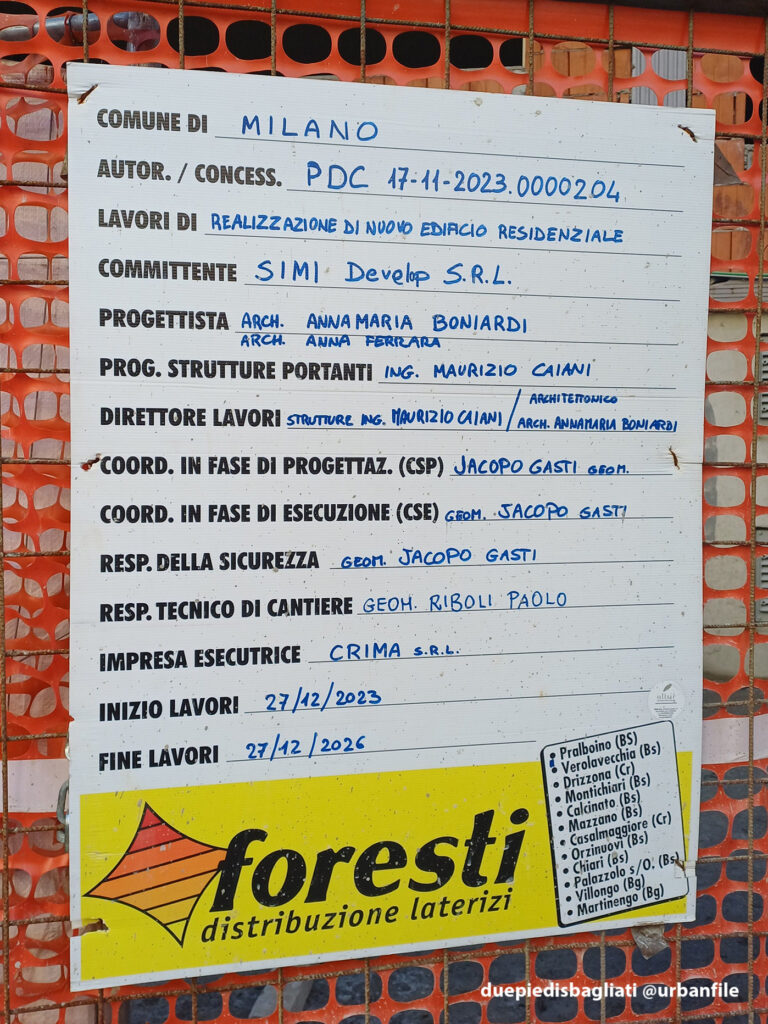 COMUNE DI MILANO
AUTOR. / CONCESS. PDC 17-11-2023.0000204
LAVORI DI REALIZZAZIONE DI NUOVO EDIFICIO RESIDENZIALE
COMMITTENTE SIMI Develop S.R.L.
PROGETTISTA ARCH. ANNAMARIA BONIARDI
ARCH. ANNA FERRARA
PROG. STRUTTURE PORTANTI ING. MAURIZIO CAIANI
DIRETTORE LAVORI STRUTTURE ING. MAURIZIO CAIANI / ARCHITETTONICO
ARCH. ANNAMARIA BONIARDI
COORD. IN FASE DI PROGETTAZ. (CSP) JACOPO GASTI GEOM.
COORD. IN FASE DI ESECUZIONE (CSE) GEOM. JACOPO GASTI
RESP. DELLA SICUREZZA GEOM. JACOPO GASTI
RESP. TECNICO DI CANTIERE GEOM. RIBOLI PAOLO
IMPRESA ESECUTRICE CRIMA S.R.L.
INIZIO LAVORI 27/12/2023
FINE LAVORI 27/12/2026
foresti
distribuzione laterizi
• Pralboino (BS)
• Verolavecchia (Bs)
• Drizzona (Cr)
• Montichiari (Bs)
• Calcinato (Bs)
• Mazzano (Bs)
• Casalmaggiore (Cr)
• Orzinuovi (Bs)
• Chiari (Bs)
• Palazzolo s/O. (Bs)
• Villongo (Bg)
• Martinengo (Bg)
duepiedisbagliati @urbanfile